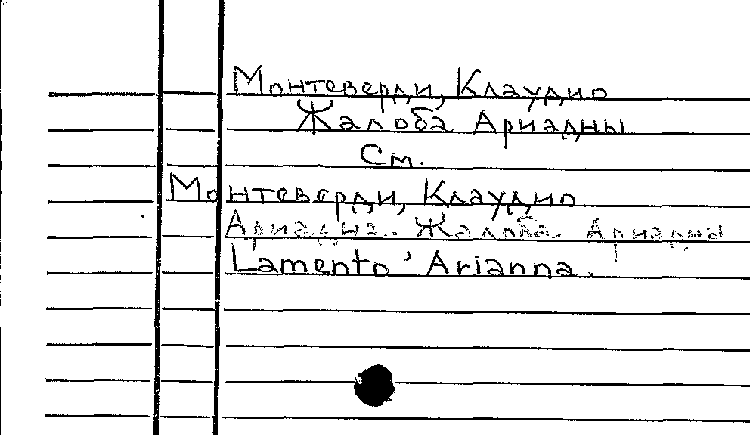 Монтеверди, Клаудио
Жалоба Ариадны
См.
Монтеверди, Клаудио
Ариадна. Жалоба Ариадны
Lamento 'Arianna.